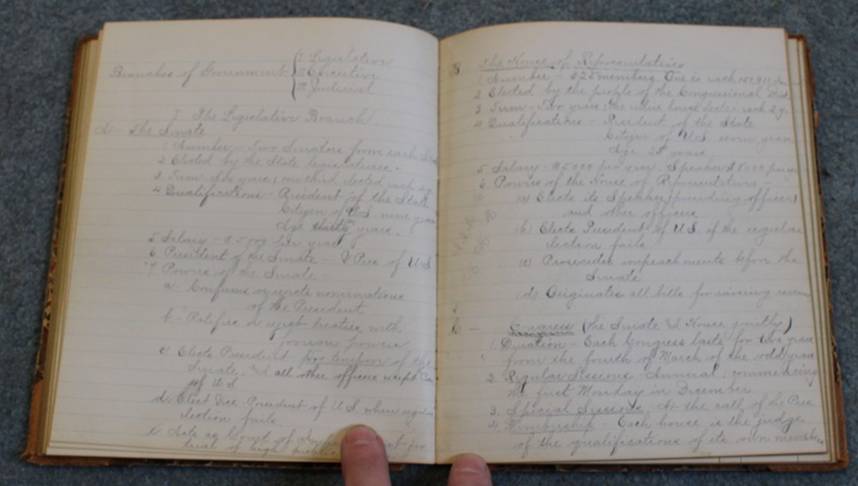 1 Legislative
Branches of Government 2 Executive
3 Judicial
I The Legislative Branch
The Senate
1 Number - Two Senators from each
2 Elected by the State legislature.
3 Term - Six years; one third elected each
4 Qualifications - Resident of the State
Citizen of U.S. nine years
Age thirty years.
5 Salary - $5000 per year
6 President of the Senate - V Pres of U.S.
7 Powers of the Senate
a - Confirms or rejects nominations
of the President
b - Ratifies or rejects treaties with
foreign powers
c Elects President pro tempore of the
Senate, and all other officers except
of U.S.
d. Elect Vice-President of U.S. when regular
election fails
e Acts as Court of
of high
B The House of Representatives
1 Number - 325 members One is each
2 Elected by the people of the Congressional Dist
3 Term - Two years; the entire house
4 Qualifications - Resident of the State
Citizen of U.S. seven years
Age 25 years
5 Salary $5000 per year. Speaker $8000
6 Powers of the House of Representatives
a) Elects its Speaker (presiding officer)
and other officers
b) Elects President of U.S. if the regular
election fails
(c) Prosecutes impeachments before the
Senate
(d) Originates all bills for raising revenue
C - Congress (the Senate & House jointly)
1. Duration - Each Congress lasts for two years
from the fourth of March of the odd years
2. Regular Sessions Annual: commencing
the first Monday in December
3. Special Sessions. At the call of the Pres
4. Membership - Each house is the judge
of the qualifications of its own members